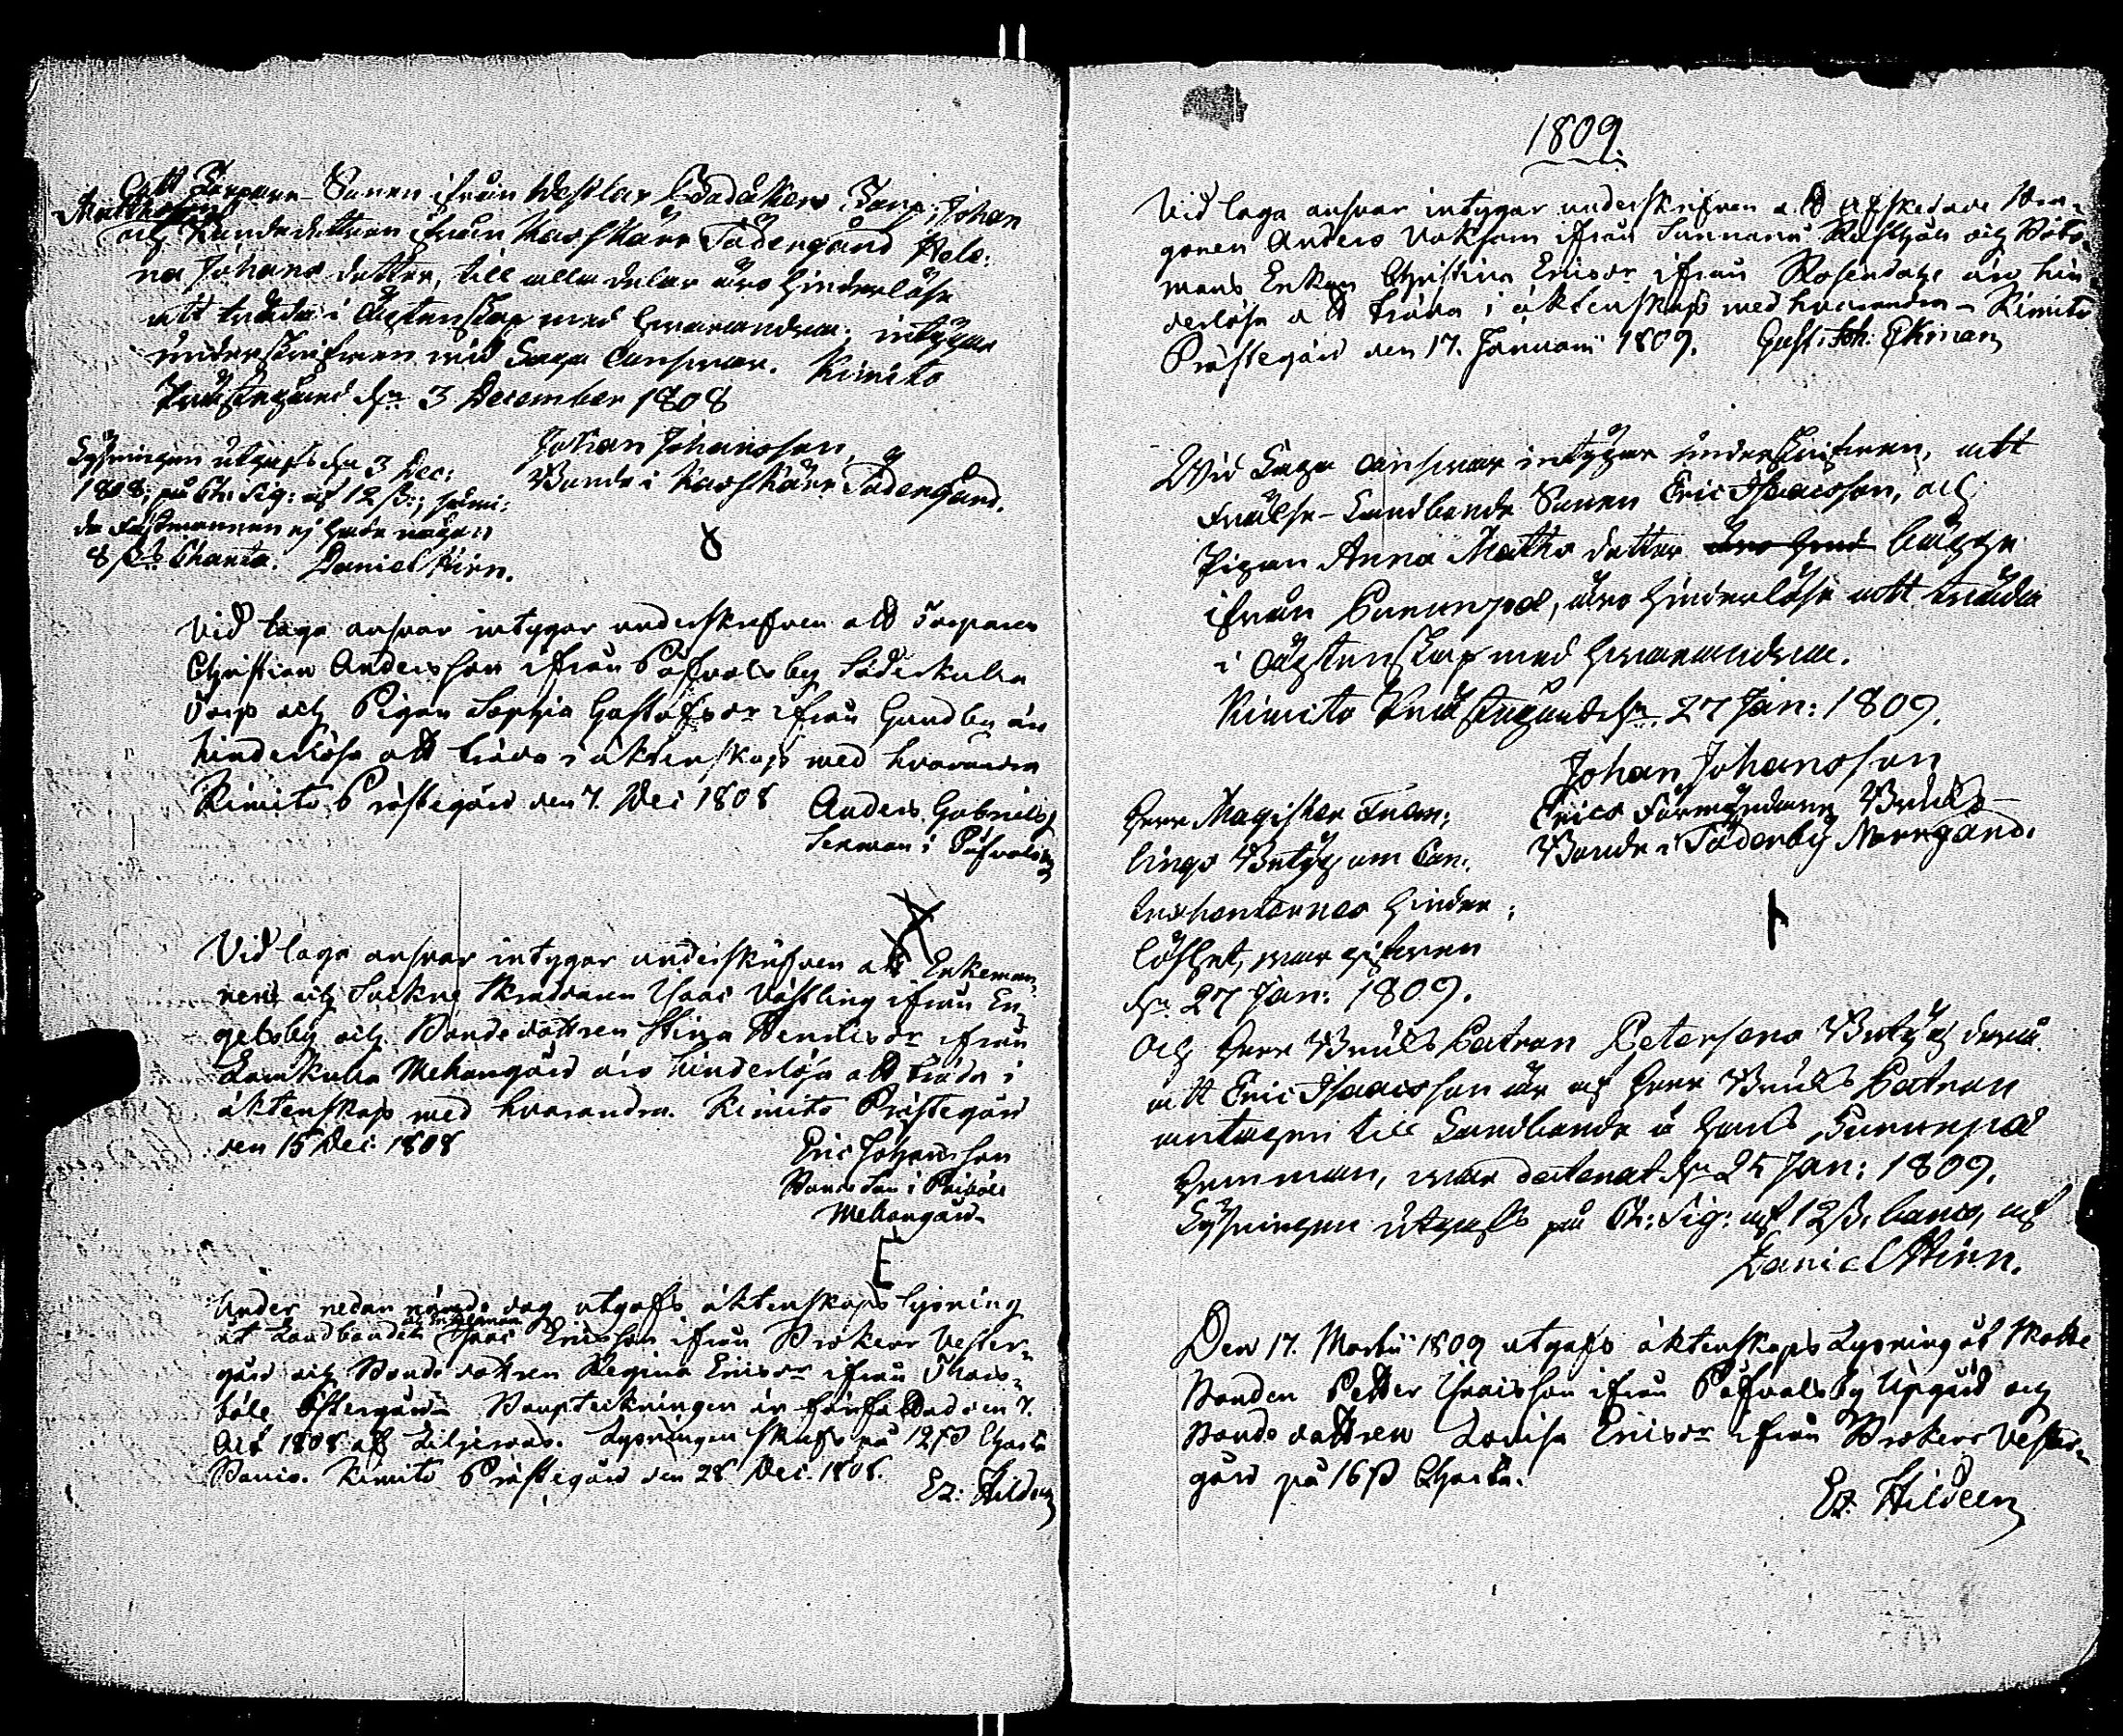 Att Torpare-Sonen ifrån Westlax Ladåkers Torp, Johan
Mathsson
och Bondedottren ifrån Kaskkärr Södergård Hele:
na Johans dotter, till alla delar äro hinderlöse
att träda i Ägtenskap med hwarandra; intygar
underskrifwen wid Laga answar. Kimito
Prästegård d:n 3 December 1808
Johan Johansson,
Bonde i Kaskkärr Södergård.
Lysningen utgafs d:n 3 Dec:
1808, på Ch: Sig: af 12 ß:, emi:
da Fästmannen ej hade någon
8 ß:s Charta. Daniel Hirn.
Vid laga ansvar intygar underskrefven att Torparen
Christian Andersson ifrån Påfvalsby Söderkulla
Torp och Pigan Sophia Gustafsdr ifrån Gundby äro
hinderlöse att träda i äktenskap med hvarandra
Kimito Prästegård den 7. Dec 1808
Anders Gabriels
Sexman i Påfvalsby
Vid laga ansvar intygar underskrifven att Enkeman-
nen och Sockne Skräddaren Isaac Västling ifrån En-
gelsby och Bondedottren Stina Hendricsdr ifrån
Lamkulla Mellangård äro hinderlösa att träda i
äktenskap med hvarandra. Kimito Prästegård
den 15 Dec 1808
Eric Johansson
Bonde Son i Pajböle
Mellangård
Under nedan nämde dag utgafs äktenskaps lysning
och Enkeman
åt Landbonden Isaac Ericsson ifrån Brokerr Vester-
gård och Bonde dottren Regina Ericsdr ifrån Thors-
böle Östergård. Bouptekningen är författad den 7.
Oct 1808 af Liljerosˢ. Lysningen skrefs på 12 ß Charta
Banco. Kimito Prästegård den 28 Dec. 1808.
Ez: Hildeen
1809.
Vid laga ansvar intygar underskrifven att afskedade Vor-
gonen Anders Voksam ifrån Sunnanå Rusthåll och Båts-
mans Enkan Christina Ericsdr ifrån Rosendahl äro hin-
derlösa att träda i äktenskap med hvarandra - Kimito
Prästegård den 17. Januarii 1809. Gust: Joh: Ekman
Wid Laga answar intygar underskrifwen, att
Frälse-Landbonde Sonen Eric Isaacsson, och
Pigan Anna Maths dotter äro hind bägge
ifrån Cunungå, äro hinderlöse att träda
i ägtenskap med hwarandra.
Kimito Prästegård d:n 27 Jan: 1809.
Johan Johansson
Erics Förmyndare, Bruks-
Bonde i Söderby Norrgård.
Herr Magister Fram:
lings Betyg om Con:
trahenternas hinder:
löshet, war gifwen
d:n 27 Jan: 1809.
Och Herr Bruks Patron Petersens Betyg derå
att Eric Isaacsson är af Herr Bruks Patron
antagen till Landbonde å hans Cunungå
Hemman, war daterat d:n 25 Jan: 1809.
Lysningen utgafs på Ch: Sig: af 12 ß: banco, af
Daniel Hirn.
Den 17. Martii 1809 utgafs äktenskaps Lysning åt Skatte
Bonden Petter Isaacsson ifrån Påfvalsby Upgård och
Bonde dottren Lovisa Ericsdr ifrån Brokerr Vester-
gård på 16 ß Charta.
Ez. Hildeen